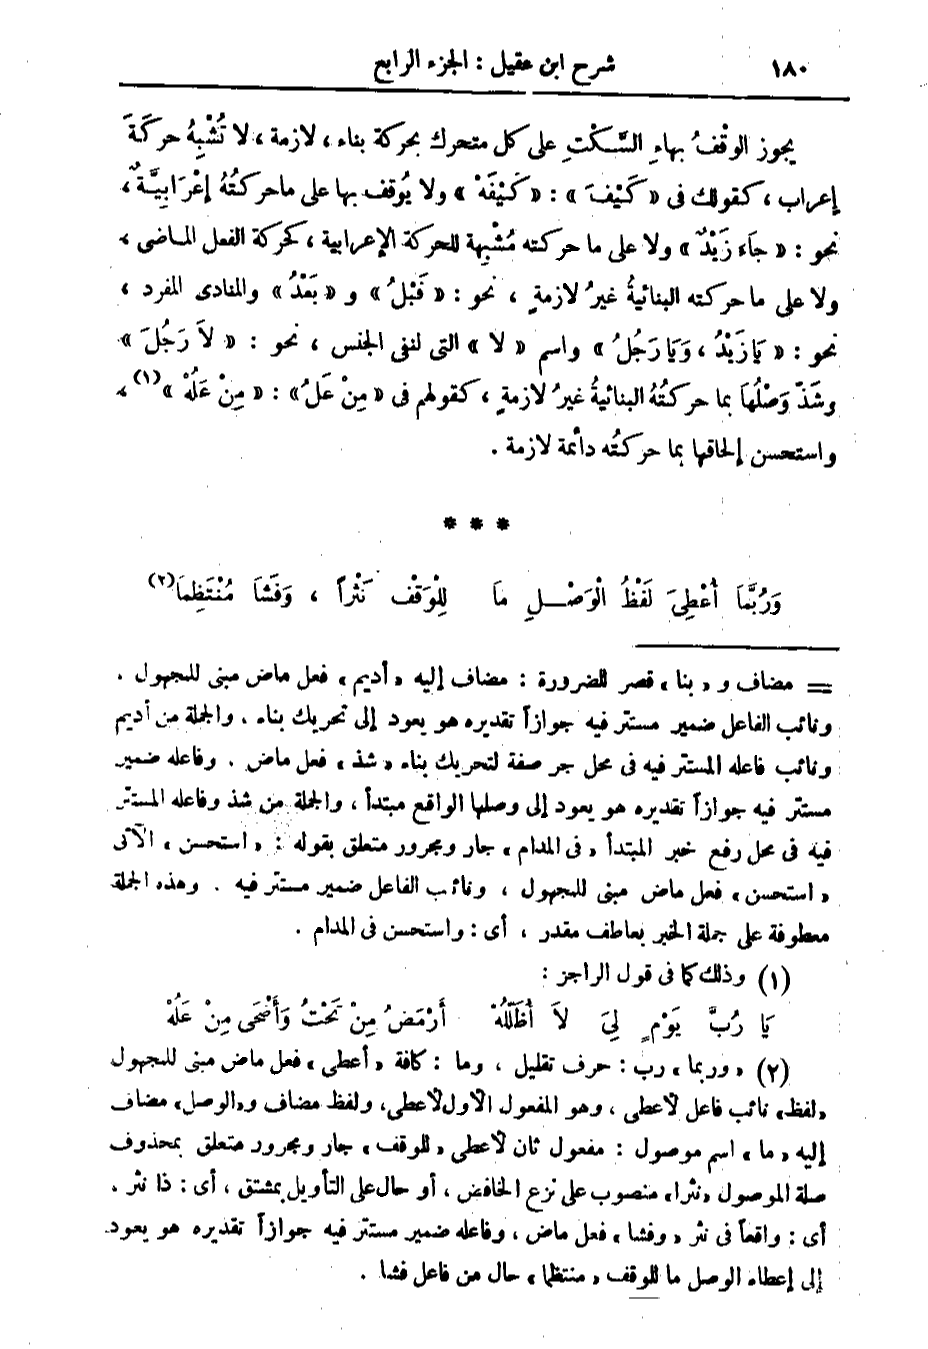 ١٨٠ شرح ابن عقيل : الجزء الرابع
يجوز الوقْفُ بهاءِ السَّكْتِ على كل متحرك بحركة بناء ، لازمة ، لا تُشْبِهُ حركَةَ
إعراب ، كقولك فى « كَيْفَ » : « كَيْفَهْ » ولا يُوقف بها على ما حركتُهُ إعْرَابِيَّةٌ ،
نحو : « جَاء زَيْدٌ » ولا على ما حركته مُشْبِهة للحركة الإعرابية ، كحركة الفعل الماضى ،
ولا على ما حركته البنائيةُ غيرُ لازمةٍ ، نحو : « قَبْلُ » و « بَعْدُ » والمنادى المفرد ،
نحو : « يَا زَيْدُ ، وَيَا رَجُلُ » واسم « لا » التى لنفى الجنس ، نحو : « لاَ رَجُلَ »
وشَذّ وَصْلُهَا بما حركتُهُ البنائيةُ غيرُ لازمةٍ ، كقولهم فى « مِنْ عَلُ » : « مِنْ عَلُهْ »(١) ،
واستحسن إلحاقها بما حركتُه دأئمة لازمة .
* * *
وَرُبَّمَا أُعْطِىَ لَفْظُ الْوَصْــلِ مَا لِلْوَقْفِ نَثْراً ، وَفَشَا مُنْتَظِمَا(٢)
= مضاف و « بنا » قصر للضرورة : مضاف إليه « أديم » فعل ماض مبنى للمجهول .
ونائب الفاعل ضمير مستتر فيه جوازاً تقديره هو يعود إلى تحريك بناء . والجملة من أديم
ونائب فاعله المستتر فيه فى محل جر صفة لتحريك بناء « شذ » فعل ماض . وفاعله ضمير
مستتر فيه جوازاً تقديره هو يعود إلى وصلها الواقع مبتدأ ، والجملة من شذ وفاعله المستتر
فيه فى محل رفع خبر المبتدأ « فى المدام » جار ومجرور متعلق بقوله : « استحسن » الآتى
« استحسن » فعل ماض مبنى للمجهول ، ونائب الفاعل ضمير مستتر فيه . وهذه الجملة
معطوفة على جملة الخبر بعاطف مقدر ، أى : واستحسن فى المدام .
(١) وذلك كما فى قول الراجز :
يَا رُبَّ يَوْمٍ لِىَ لاَ أُظَلَّلُهْ أَرْمَضُ مِنْ تَحْتُ وَأَضْحَى مِنْ عَلُهْ
(٢) « وربما » رب : حرف تقليل ، وما : كافة « أعطى » فعل ماض مبنى للمجهول
« لفظ » نائب فاعل لأعطى ، وهو المفعول الأول لأعطى ، ولفظ مضاف و « الوصل » مضاف
إليه « ما » اسم موصول : مفعول ثان لأعطى « للوقف » جار ومجرور متعلق بمحذوف
صلة الموصول « نثرا » منصوب على نزع الخافض ، أو حال على التأويل بمشتق ، أى : ذا نثر .
أى : واقعاً فى نثر « وفشا » فعل ماض ، وفاعله ضمير مستتر فيه جوازاً تقديره هو يعود
إلى إعطاء الوصل ما للوقف « منتظما » حال من فاعل فشا .